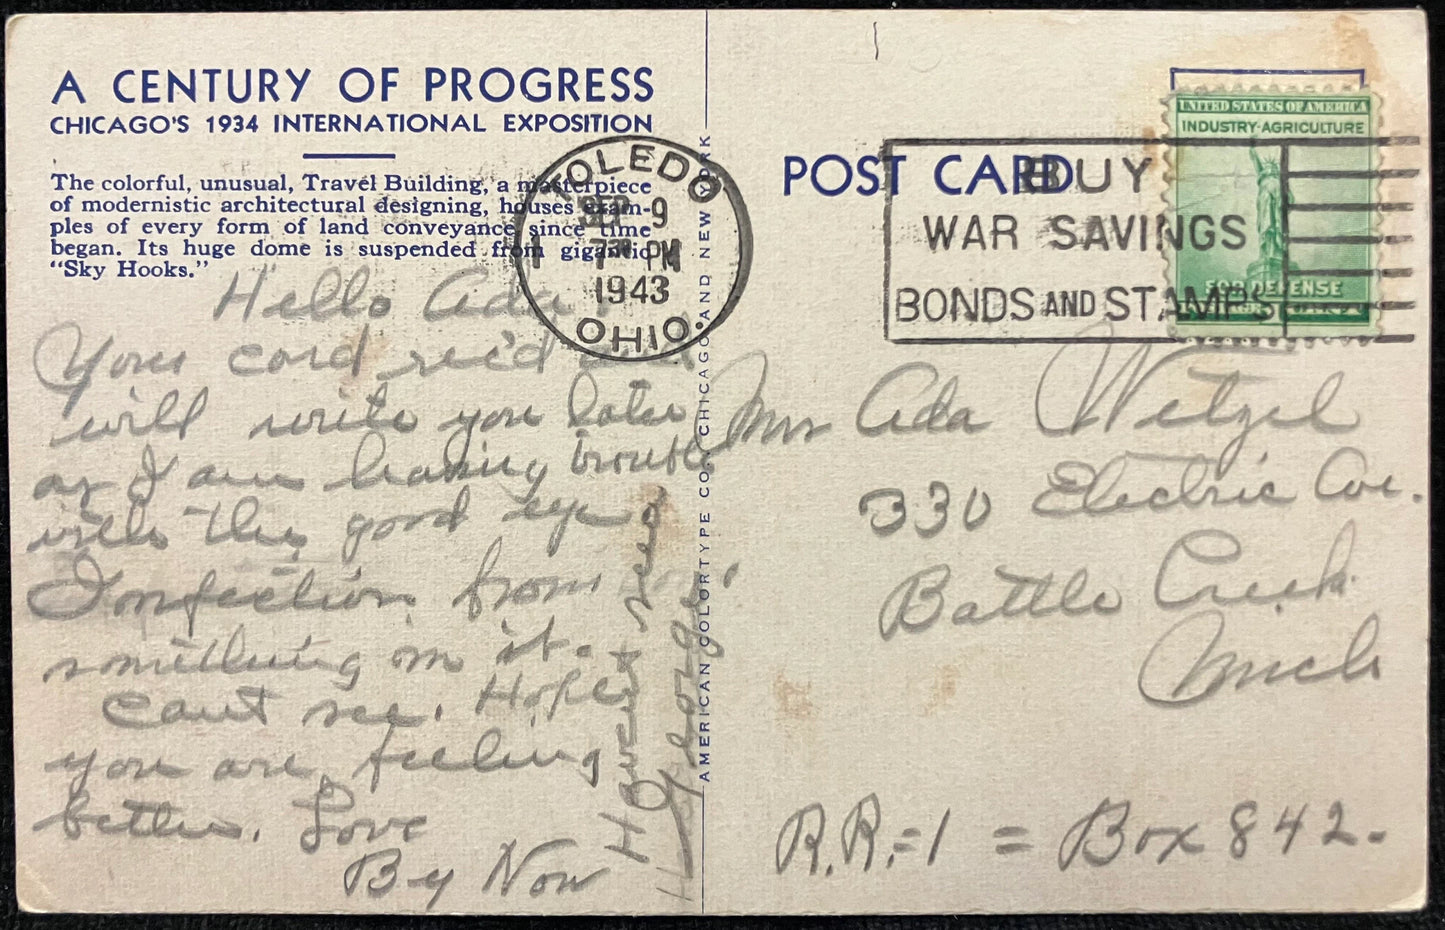 A CENTURY OF PROGRESS
CHICAGO'S 1934 INTERNATIONAL EXPOSITION
The colorful, unusual, Travel Building, a masterpiece
of modernistic architectural designing, houses exam-
ples of every form of land conveyance since time
began. Its huge dome is suspended from gigantic
"Sky Hooks."
Hello Ada
Your card rec'd and
will write you later
as I am having trouble
with the good eye
Infection from or
something in it.
Cant see. Hope
you are feeling
better. Love
By Now
Havent seen
George
AMERICAN COLORTYPE CO., CHICAGO AND NEW YORK
TOLEDO
SEP 9
7 30 PM
1943
OHIO.
POST CARD
BUY
WAR SAVINGS
BONDS AND STAMPS
UNITED STATES OF AMERICA
INDUSTRY-AGRICULTURE
FOR DEFENSE
Mrs Ada Wetzel
330 Electric Ave.
Battle Creek
Mich
R.R.=1 = Box 842.